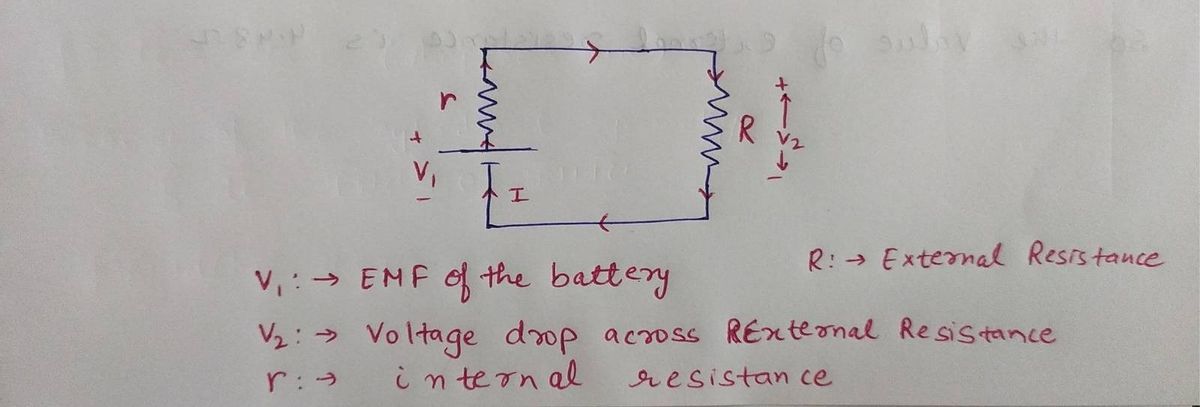 r
+
V₁
-
I
R
+
V₂
-
R: → External Resistance
V₁: → EMF of the battery
V₂: → Voltage drop across RExternal Resistance
r: → internal resistance